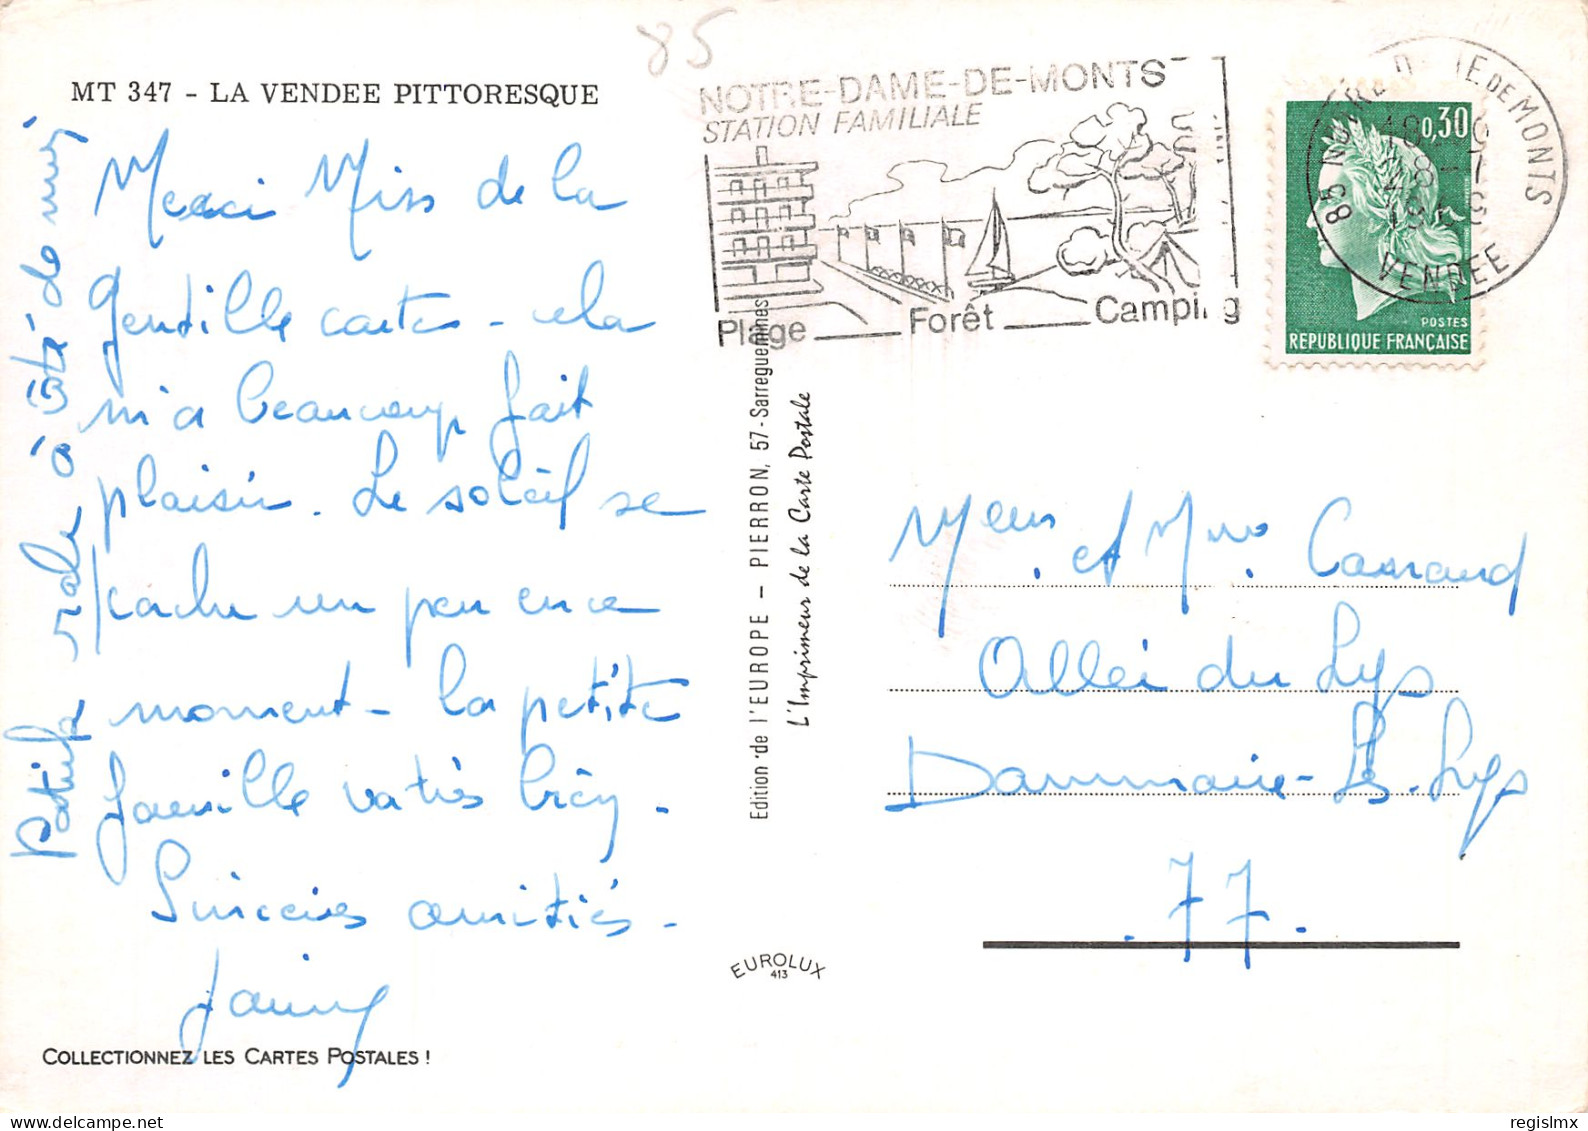 85
MT 347 - LA VENDEE PITTORESQUE
NOTRE-DAME-DE-MONTS
STATION FAMILIALE
Plage Forêt Camping
85 NOTRE DAME DE MONTS
VENDEE
0,30
POSTES
REPUBLIQUE FRANÇAISE
Merci Miss de la
Gentille carte - cela
m'a beaucoup fait
plaisir. Le soleil se
cache un peu en ce
moment - la petite
famille va très bien -
Sincères amitiés -
à côté de moi
Edition de l'EUROPE - PIERRON, 57 - Sarreguemines
L'Imprimeur de la Carte Postale
EUROLUX
413
Meur et Mme
Allée du Lys
Dammarie-Les-Lys
.77.
COLLECTIONNEZ LES CARTES POSTALES !
regislmx